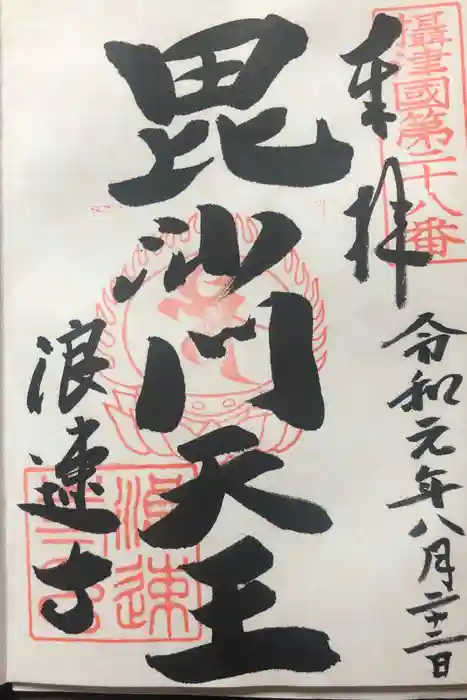 攝津國第二十八番
奉拝
令和元年八月二十二日
毘沙門天王
浪速寺
浪速